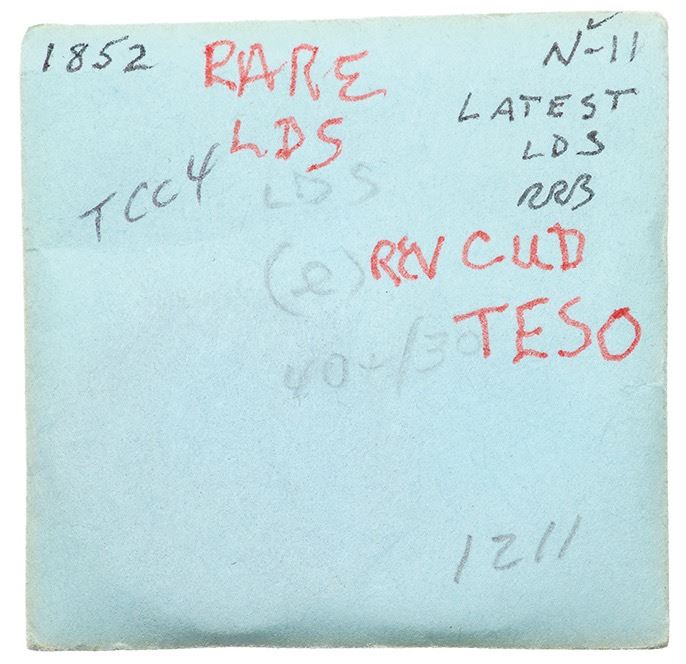 1852 RARE N-11
LDS LATEST
LDS
TCC4 LDS RRB
(e) REV CUD
TESO
40-/30
1211